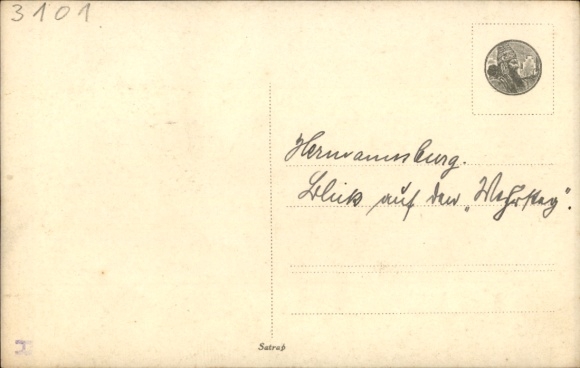 3101
Hermannsburg.
Blick auf den „Wehrsteg“.
Satrap
H